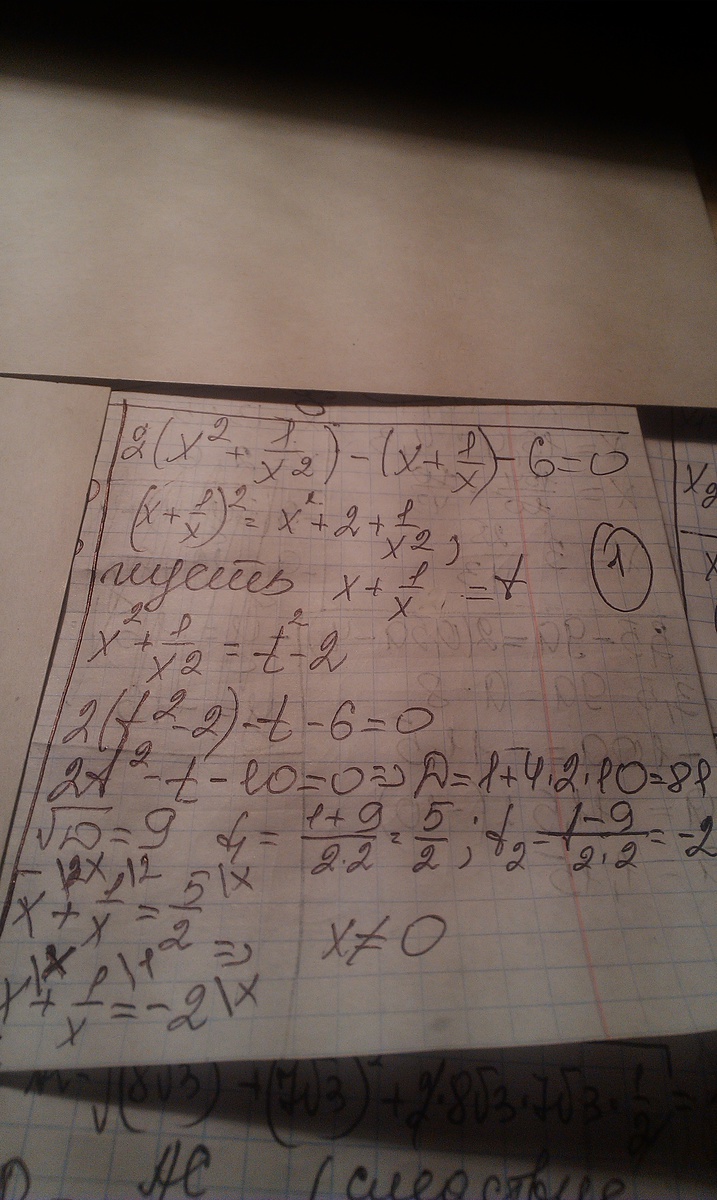 2(x² + 1/x²) - (x + 1/x) - 6 = 0
(x + 1/x)² = x² + 2 + 1/x²;
пусть x + 1/x = t
1
x² + 1/x² = t² - 2
2(t² - 2) - t - 6 = 0
2t² - t - 10 = 0 => D = 1 + 4·2·10 = 81
√D = 9 t₁ = (1+9)/(2·2) = 5/2; t₂ = (1-9)/(2·2) = -2
x\2x + 1/x\2 = 5/2\x
=> x ≠ 0
x\x + 1/x\1 = -2\x
x₂
x
√(8√3)² + (7√3)² + 2·8√3·7√3·1/2 =
AC (следствие